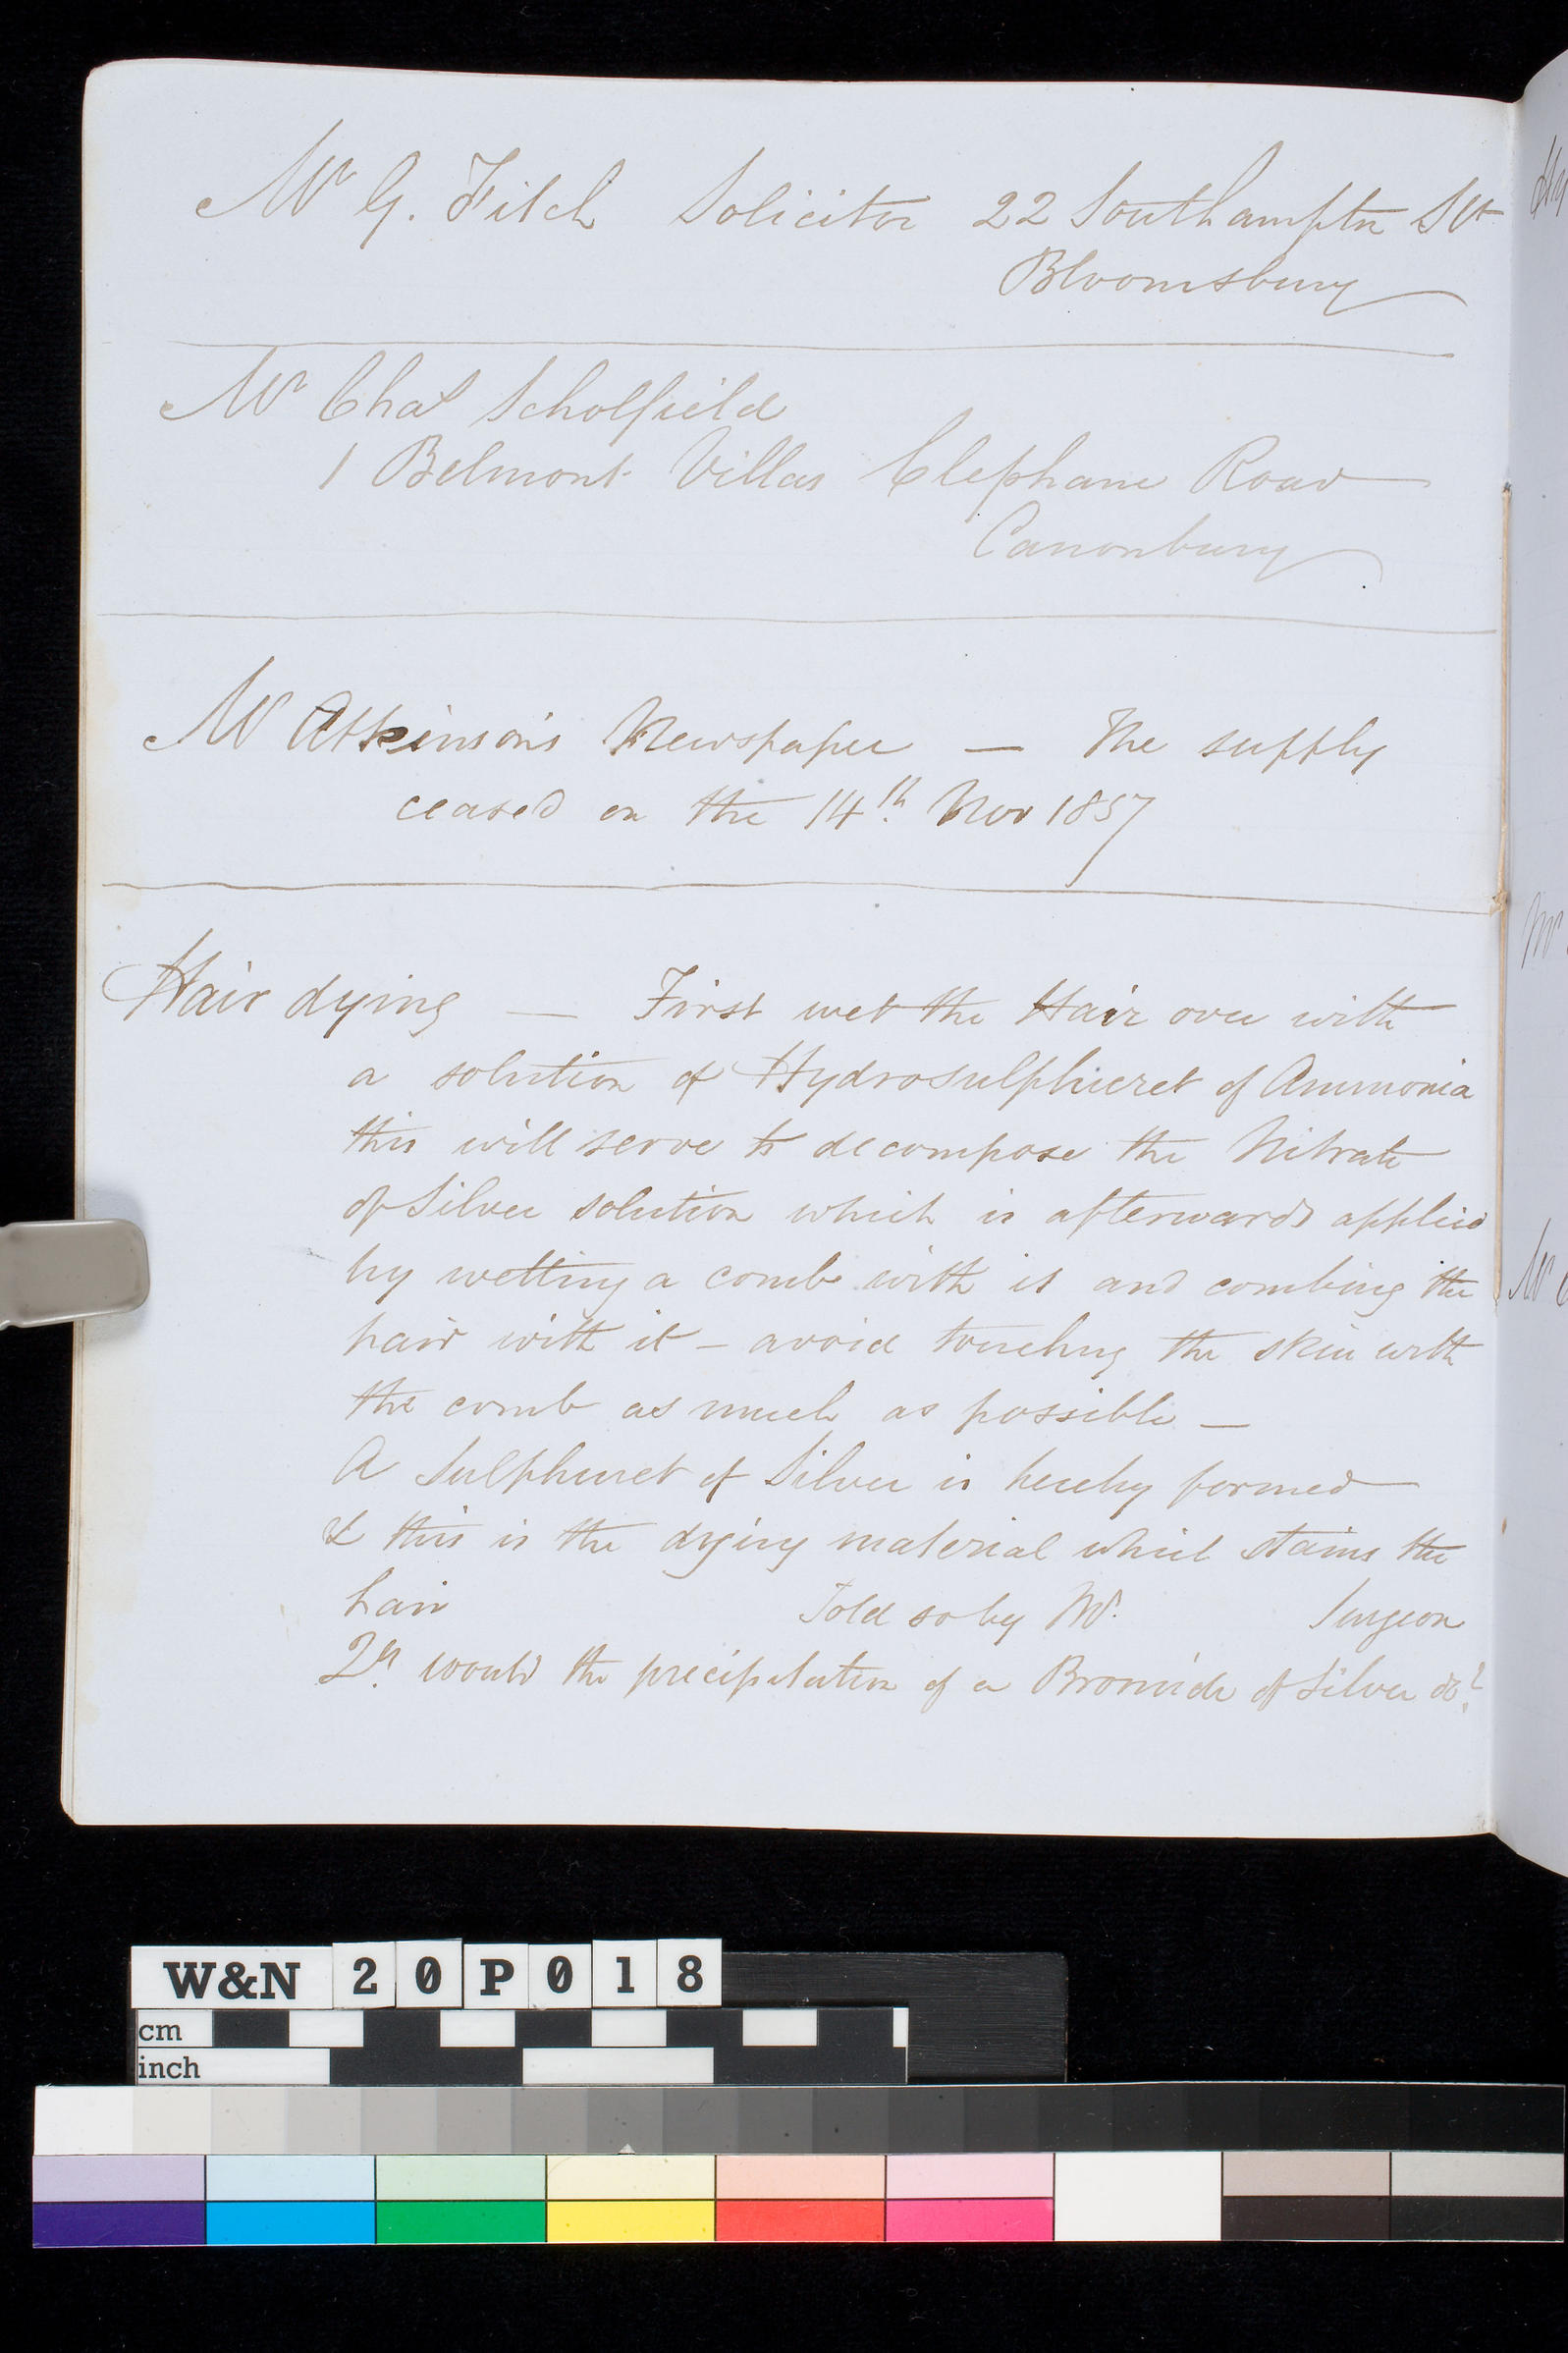 Mr G. Fitch Solicitor 22 Southampton St
Bloomsbury
Mr Chas Scholfield
1 Belmont Villas Clephane Road
Canonbury
Mr Atkinson's Newspaper — The supply
ceased on the 14th Nov 1857
Hair dying — First wet the Hair over with
a solution of Hydrosulphuret of Ammonia
this will serve to decompose the Nitrate
of Silver solution which is afterwards applied
by wetting a comb with it and combing the
hair with it – avoid touching the skin with
the comb as much as possible —
A Sulphuret of Silver is hereby formed
& this is the dying material which stains the
hair Told so by Mr. Surgeon
Qy. would the precipitation of a Bromide of Silver do?
W&N 20P018
cm
inch